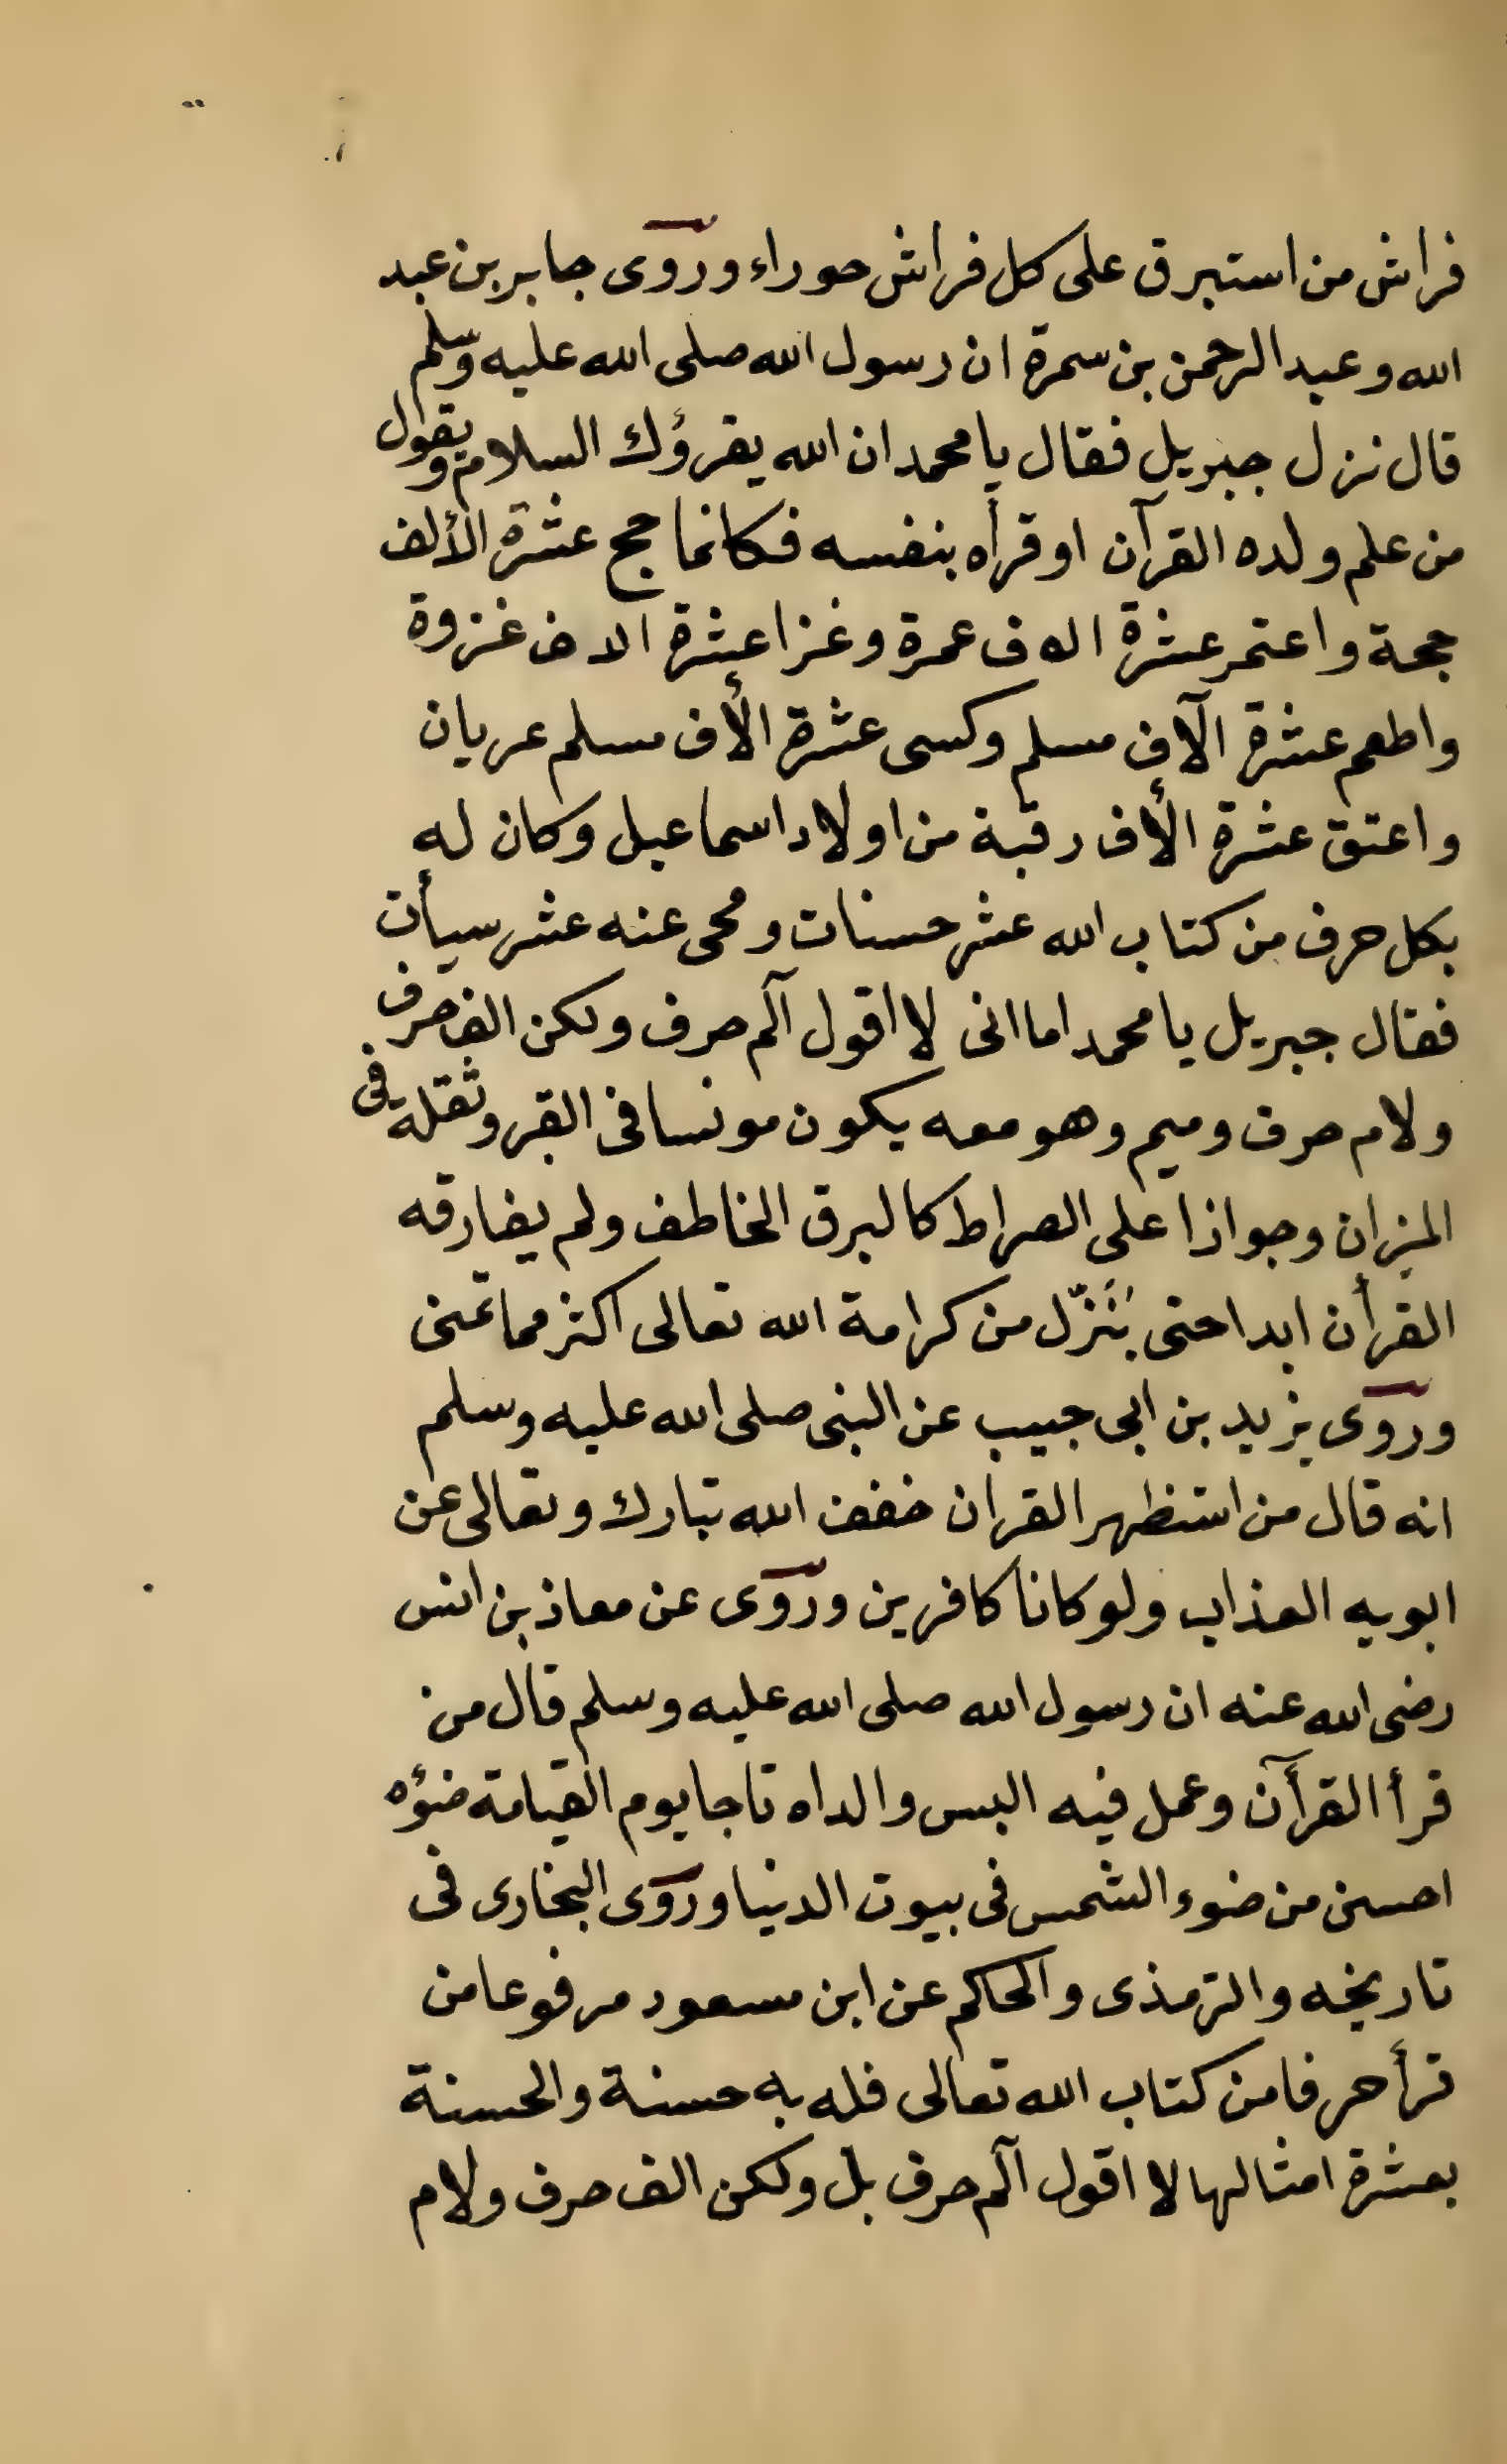 فراش من استبرق على كل فراش حوراء وروى جابر بن عبد
الله وعبد الرحمن بن سمرة ان رسول الله صلى الله عليه وسلم
قال نزل جبريل فقال يا محمد ان الله يقرؤك السلام ويقول
من علم ولده القرآن او قرأه بنفسه فكانما حج عشرة الألف
حجة واعتمر عشرة الاف عمرة وغزا عشرة الاف غزوة
واطعم عشرة آلاف مسلم وكسى عشرة الأف مسلم عريان
واعتق عشرة الأف رقبة من اولاد اسماعيل وكان له
بكل حرف من كتاب الله عشر حسنات ومحى عنه عشر سيأت
فقال جبريل يا محمد اما انى لا اقول آلم حرف ولكن الف حرف
ولام حرف وميم وهو معه يكون مونسا فى القبر وثقلة فى
الميزان وجوازا على الصراط كالبرق الخاطف ولم يفارقه
القرأن ابدا حتى يَنَزّل من كرامة الله تعالى اكثر مما تمنى
وروى يزيد بن ابى حبيب عن النبى صلى الله عليه وسلم
انه قال من استظهر القران خفف الله تبارك وتعالى عن
ابويه العذاب ولو كانا كافرين وروى عن معاذ بن انس
رضى الله عنه ان رسول الله صلى الله عليه وسلم قال من
قرأ القرأن وعمل فيه البس والداه تاجا يوم القيامة ضؤه
احسن من ضوء الشمس فى بيوت الدنيا وروى البخارى فى
تاريخه والترمذى والحاكم عن ابن مسعود مرفوعا من
قرأ حرفا من كتاب الله تعالى فله به حسنة والحسنة
بعشرة امثالها لا اقول آلم حرف بل ولكن الف حرف ولام